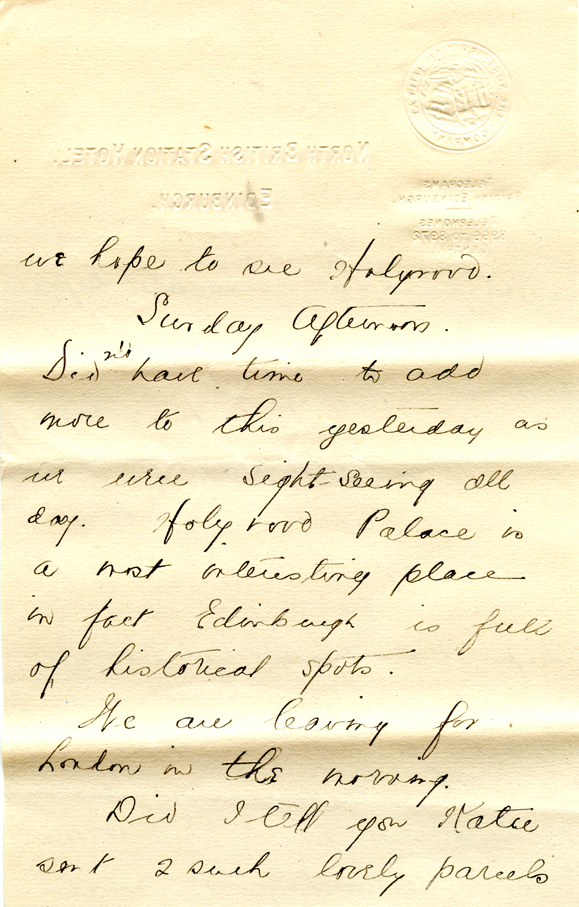 NORTH BRITISH STATION HOTEL.
EDINBURGH.
TELEGRAMS
EDINBURGH.
TELEPHONES
COMPANY
we hope to see Holyrood.
Sunday Afternoon.
Didn't have time to add
more to this yesterday as
we were sight-seeing all
day. Holyrood Palace is
a most interesting place
in fact Edinburgh is full
of historical spots.
We are leaving for
London in the morning.
Did I tell you Katie
sent 2 such lovely parcels